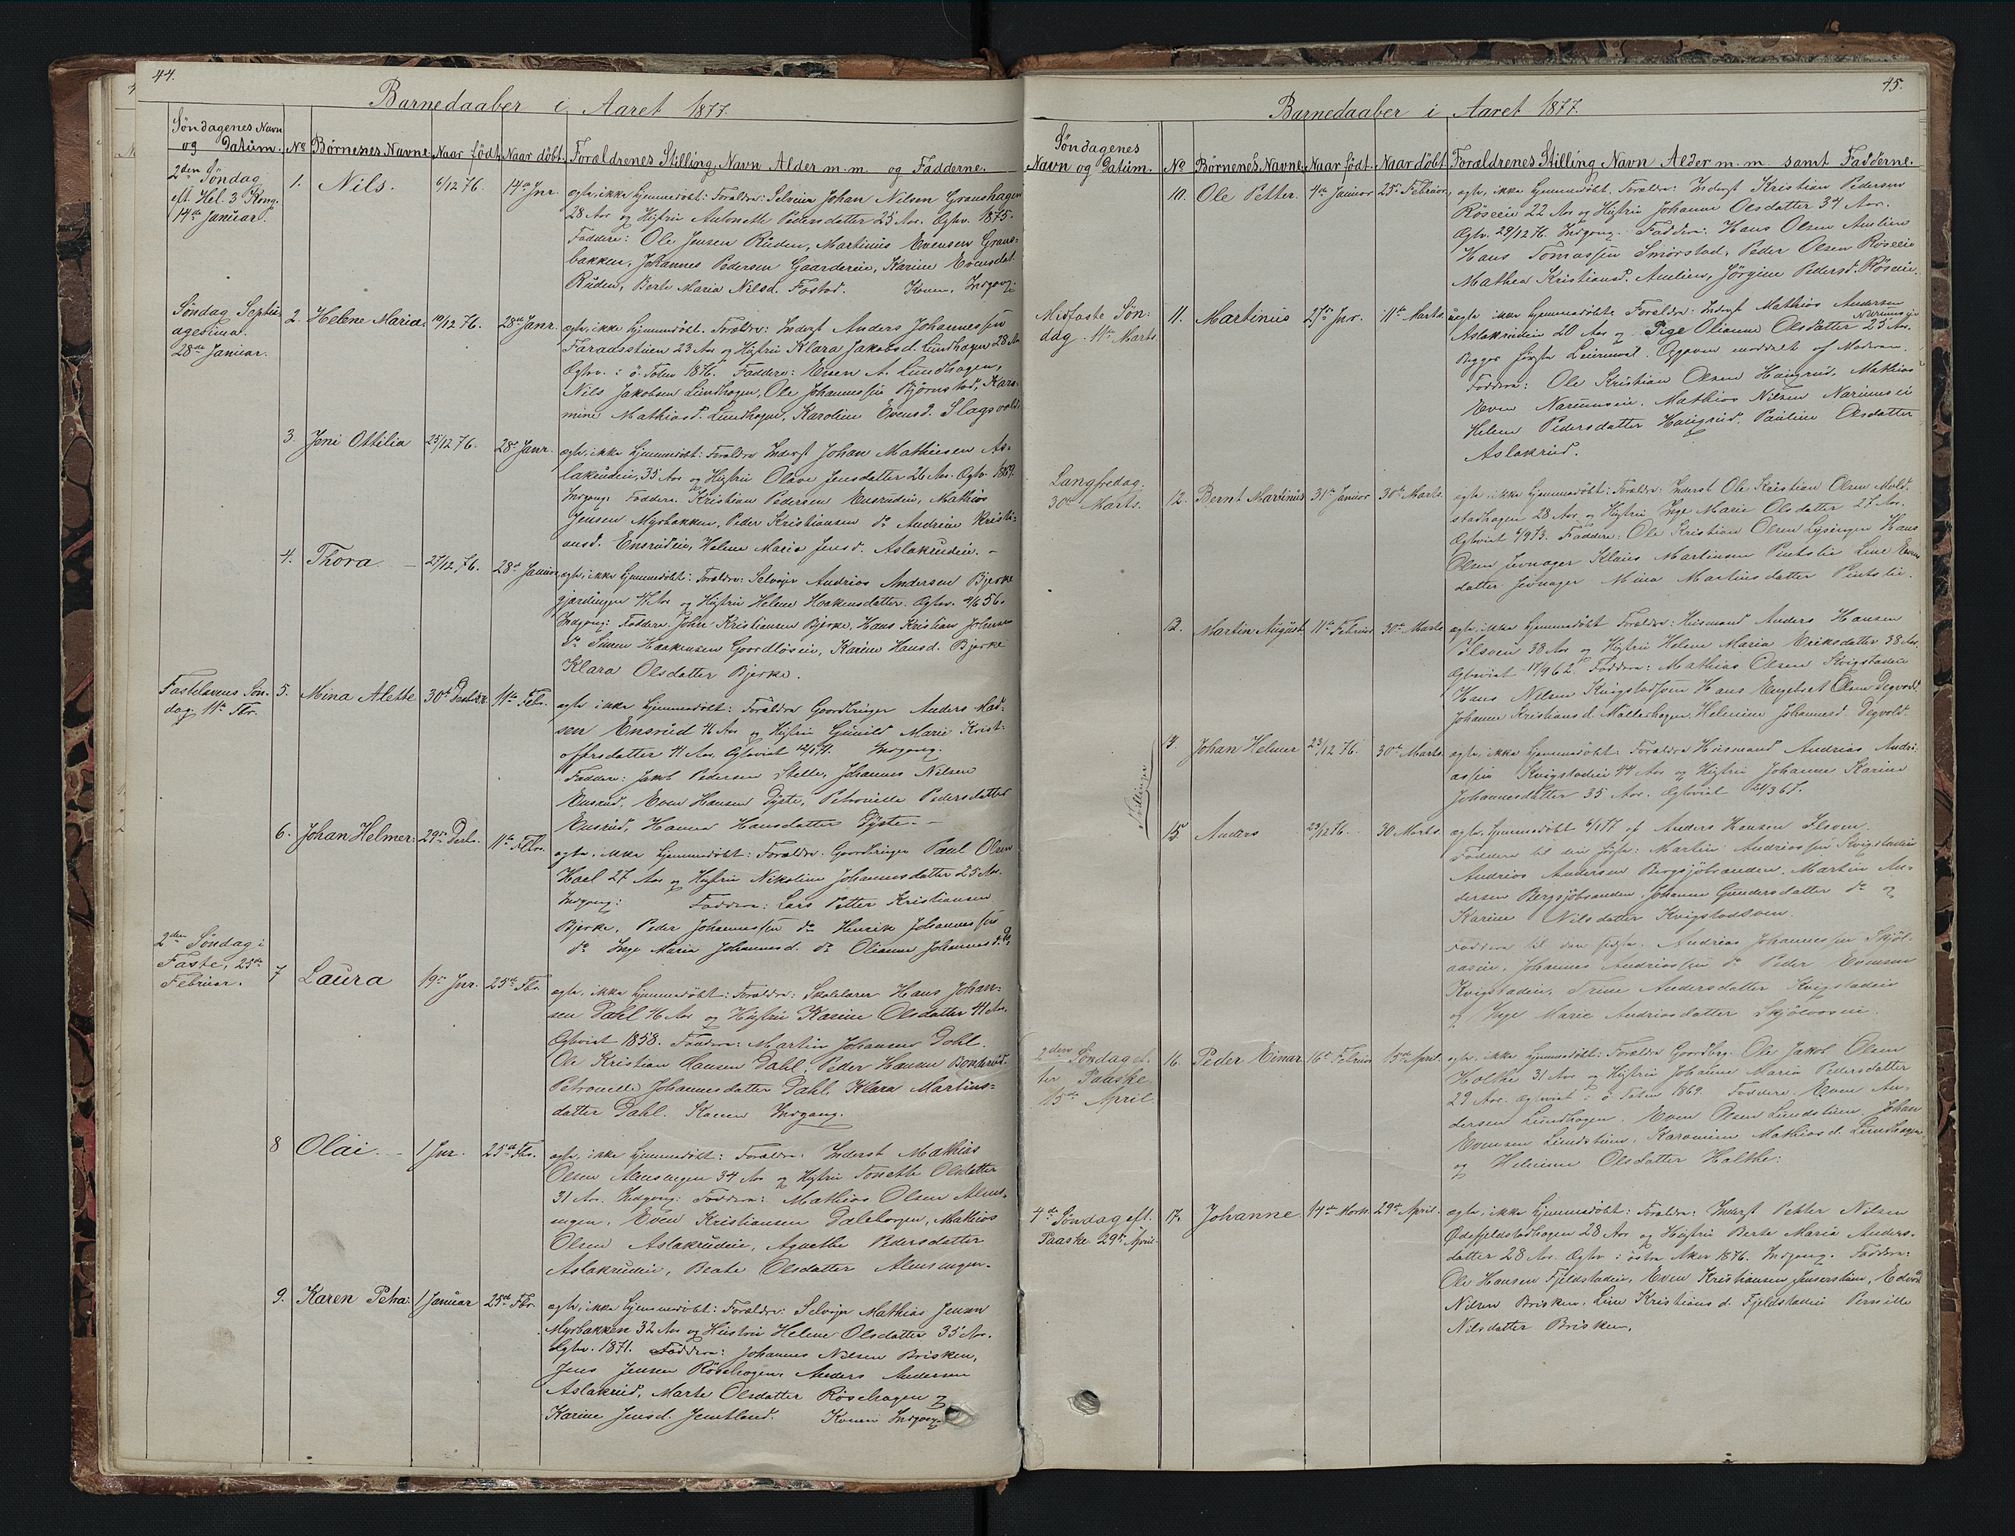 44.
Barnedaaber i Aaret 1877.
Søndagenes Navn og Datum. No Børnenes Navne. Naar født. Naar döbt. Forældrenes Stilling, Navn Alder m. m. og Fadderne.
2den Søndag eft. Hel. 3 Kong. 14de Januar.
1. Nils. 6/12 76. 14de Jnr.
ægte, ikke hjemmedöbt: Forældre: Selveier Johan Nilsen Granshagen
28 Aar og Hustru Anthonette Pedersdatter 25 Aar. Ægtev. 1875.
Faddere: Ole Jensen Ruden, Martinus Evensen Grans-
bakken, Johannes Pedersen Gaarderein, Karine Evensdat.
Ruden, Berte Maria Nilsd. Fostad. Konen, Indgong.
Søndag Septuagesima. 28de Januar.
2. Helene Maria. 10/12 76. 28de Janr.
ægte, ikke hjemmedöbt. Forældre: Inderst Anders Johannessen
Faradsstuen 23 Aar og Hustru Klara Jakobsd. Lundhagen 28 Aar
Ægtev. i ö. Toten 1876. Faddere: Even A. Lundhagen,
Nils Jakobsen Lundhagen, Ole Johannessen Björnstad, Kar-
mine Mathiasd. Lundhagen, Karoline Evensd. Slagsvold.
3. Joni Ottilia 25/12 76. 28de Janr.
ægte, ikke hjemmedöbt: Forældre Inderst Johan Mathiesen As-
lakrudeie, 35 Aar og Hustru Olave Jensdatter 26 Aar. Ægtv. 1869.
Indgong: Faddere: Kristian Pedersen Ensrudeie, Mathias
Jensen Myrbakken, Peder Kristiansen do Andrine Kristi-
ansd. Ensrudeie, Helene Maria Jensd. Aslakrudeie. –
4. Thora 27/12 76. 28de Januar
ægte, ikke hjemmedöbt: Forældre: Selveier Andrias Andersen Bjerke
gjordingen 47 Aar og Hustru Helene Haakensdatter. Ægtev. 4/6 56.
Indgong: Faddere. John Kristiansen Bjerke, Hans Kristian Johnsen
do Simen Haakensen Goordlöseie, Karine Hansd. Bjerke
Klara Olsdatter Bjerke.
Fastelavens Søndag 11te Fbr.
5. Mina Alette 30te 11te Febr.
ægte ikke hjemmedöbt: Forældre Goordbruger Anders Mad-
sen Ensrud 46 Aar og Hustru Gunild Marie Krist-
offersdatter 41 Aar, Ægteviet Indgong.
Faddere: Jakob Pedersen Stelle, Johannes Nilsen
Ensrud, Even Hansen Tyste, Petronelle Pedersdatter
Ensrud, Hanna Hansdatter Tyste. –
6. Johan Helmer. 29de Decbr. 11te Febr.
ægte, ikke hjemmedöbt: Forældre: Goordbruger Paul Olsen
Hoel 27 Aar og Hustru Nikoline Johannesdatter 25 Aar.
Indgong: Faddere: Lars Petter Kristiansen
Bjerke, Peder Johannessen do Henrik Johannessen
do Inge Maria Johannesd. do Olianne Johannesd. do
2den Søndag i Faste, 25de Februar.
7 Laura 19de Jnr. 25de Fbr.
ægte, ikke hjemmedöbt: Forældre: Skolelærer Hans Johan-
sen Dahl 46 Aar og Hustru Karine Olsdatter 41 Aar.
Ægteviet 1858. Faddere: Martin Johansen Dahl.
Ole Kristian Hansen Dahl. Peder Hansen Bonderud.
Petronelle Johannesdatter Dahl. Klara Martins-
datter Dahl. Konen Indgong.
8 Olai. 1 Jnr. 25de Fbr.
ægte, ikke hjemmedöbt: Forældre: Inderst Mathias
Olsen Almsengen 34 Aar og Hustru Tonette Olsdatter
31 Aar. Indgong: Faddere: Mathias Olsen Alms-
engen, Even Kristiansen Daleborgen, Mathias
Olsen Aslakrudeie, Agnethe Pedersdatter
Aslakrudeie, Beate Olsdatter Almsengen.
9. Karen Petra. 1 Januar 25de Fbr.
ægte, ikke hjemmedöbt: Forældre: Selveier Mathias Jensen
Myrbakken 32 Aar og Hustru Helene Olsdatter 35 Aar.
Ægtv. 1871. Faddere: Johannes Nilsen Brisken,
Jens Jensen Röisehagen, Anders Andersen
Aslakrud, Marte Olsdatter Röisehagen og
Karine Jensd. Jemtland. Konen Indgong.
45.
Barnedaaber i Aaret 1877.
Søndagenes Navn og Datum. No Børnenes Navne Naar født. Naar döbt Forældrenes Stilling Navn Alder m. m. samt Fadderne.
10. Ole Petter. 4de Januar 25de Februar,
ægte, ikke hjemmedöbt. Forældre: Inderst Kristian Pedersen
Röseeie 22 Aar og Hustru Johanne Olsdatter 34 Aar.
Ægtv. 29/12 76. Indgong. Faddere: Hans Olsen Amlien
Hans Tomassen Smörstad, Peder Olsen Röseeie
Mathea Kristiansd. Amlien, Jörgine Pedersd. Röseeie.
Midfaste Søndag. 11te Marts
11. Martinus 27de Jnr. 11te Marts
uægte ikke hjemmedöbt. Forældre: Inderst Mathias Andersen
Aslakrudeie 20 Aar og Pige Oliane Olsdatter Narumseie 25 Aar.
Begges første Leiermaal. Opgaven meddelt af Moderen.
Faddere: Ole Kristian Olsen Haugrud, Mathias
Even Narumseie. Mathias Nilsen Narumseie
Helene Pedersdatter Haugrud, Pauline Olsdatter
Aslakrud.
Langfredag. 30te Marts.
12. Bernt Martinus 31te Januar 30te Marts.
ægte, ikke hjemmedöbt: Forældre: Inderst Ole Kristian Olsen Mold-
stadhagen 28 Aar og Hustru Inge Marie Olsdatter 27 Aar.
Ægteviet 1973. Faddere: Ole Kristian Olsen Lysengen Hans
Olsen Jevnager Klaus Martinsen Pintslie Line Evens
datter Jevnager Mina Martinsdatter Pintslie.
13. Martin August 11te Februar 30te Marts
ægte, ikke hjemmedöbt Forældre: Husmand Anders Hansen
Ilsveen 38 Aar og Hustru Helene Maria Eriksdatter 38 Aar.
Ægteviet 17/9 62. Faddere: Mathias Olsen Kvigstadeie
Hans Nilsen Kvigstadsveen Hans Engebret Olsen Degvold.
Johanne Kristiansd. Möllerhagen, Helmine Johannesd. Degvold.
Tvillinger
14. Johan Helmer 23/12 76. 30te Marts.
ægte, ikke hjemmedöbt: Forældre Husmand Andrias Andri-
assen Kvigstadeie 44 Aar og Hustru Johanne Karine
Johannesdatter 35 Aar. Ægteviet 21/3 67.
15 Anders 23/12 76. 30. Marts.
ægte, hjemmedöbt 6/1 77 af Anders Hansen Ilsveen.
Faddere til den første: Martin Andriassen Kvigstadeie
Andrias Andersen Bergsjöstranden. Martin An-
dersen Bergsjöstranden, Johanne Gundersdatter do og
Karine Nilsdatter Kvigstadsveen.
Faddere til den sidste. Andrias Johannessen Skjöl-
aaseie, Johannes Andriassen do Peder Evensen
Kvigstadeie, Trine Andersdatter Kvigstadeie
og Inge Marie Andriasdatter Skjölaaseie.
2den Søndag efter Paaske. 15de April.
16. Peder Einar 16de Februar 15de April.
ægte, ikke hjemmedöbt: Forældre Goordbrg. Ole Jakob Olsen
Holthe 31 Aar og Hustru Johanne Maria Pedersdatter
29 Aar. Ægteviet i ö. Toten 1869. Faddere. Even An-
dersen Lundhagen, Even Olsen Lundstuen, Johan
Evensen Lundstuen, Karomine Mathiasd. Lundhagen
og Helmine Olsdatter Holthe:
4de Søndag eft. Paaske 29de April.
17. Johanne. 14de Marts 29de April.
ægte, ikke hjemmedöbt: Forældre: Inderst Petter Nilsen
Ödefjeldstadhagen 28 Aar og Hustru Berte Maria Anders-
datter 28 Aar. Ægtev. i östre Aker 1876. Indgong. Faddere:
Ole Hansen Fjeldstadeie, Even Kristiansen Jenserstuen, Edvard
Nilsen Brisken, Line Kristiansd. Fjeldstadeie Pernille
Nilsdatter Brisken.